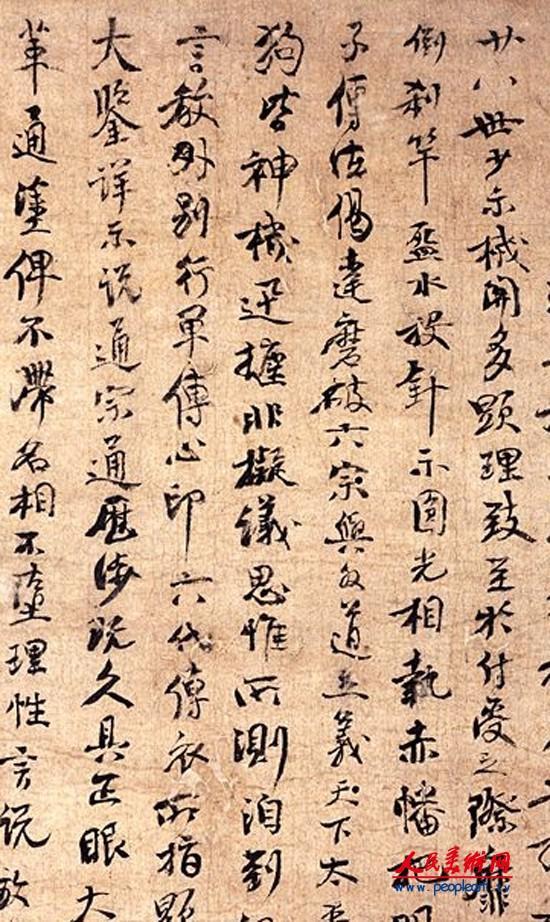 廿八世少示機關多顯理致至於付受之際靡
倒剎竿盋水投針示圓光相執赤幡把明
子傳法偈達磨破六宗與外道立義天下太平
狗皆神機迅捷非擬議思惟所測洎到
言教外別行單傳心印六代傳衣所指顯
大鑒詳示說通宗通歷涉既久具正眼大
革通塗俾不滯名相不墮理性言說放
人民美术网
www.peopleart.tv